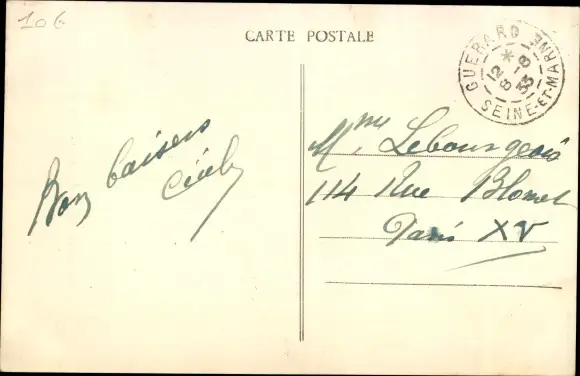 106
CARTE POSTALE
GUERARD
SEINE-ET-MARNE
Bons baisers
Mme Lebourgeois
114 Rue Blomet
Paris XV